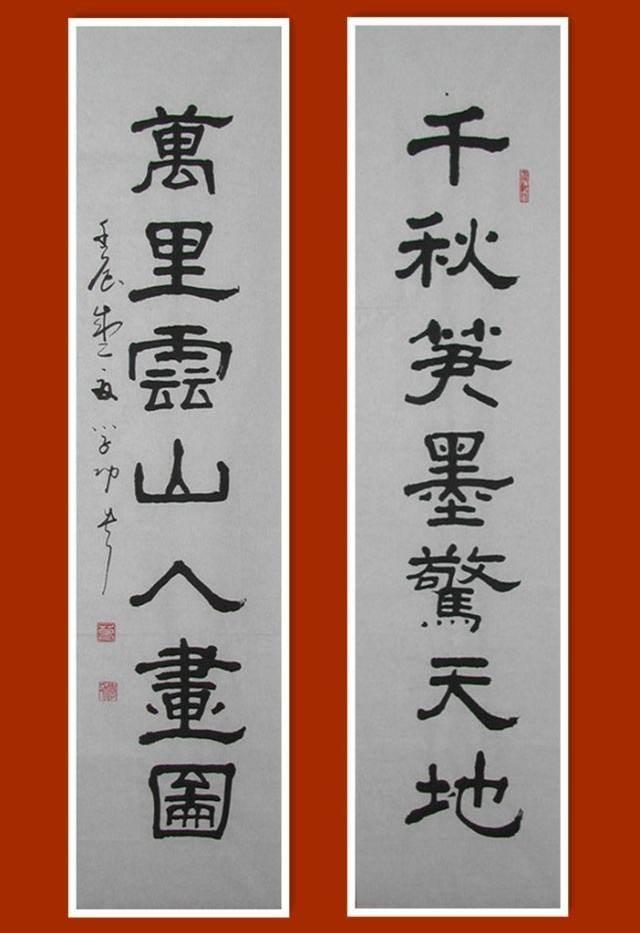 千秋筆墨驚天地
萬里雲山入畫圖
壬辰盛夏学功书